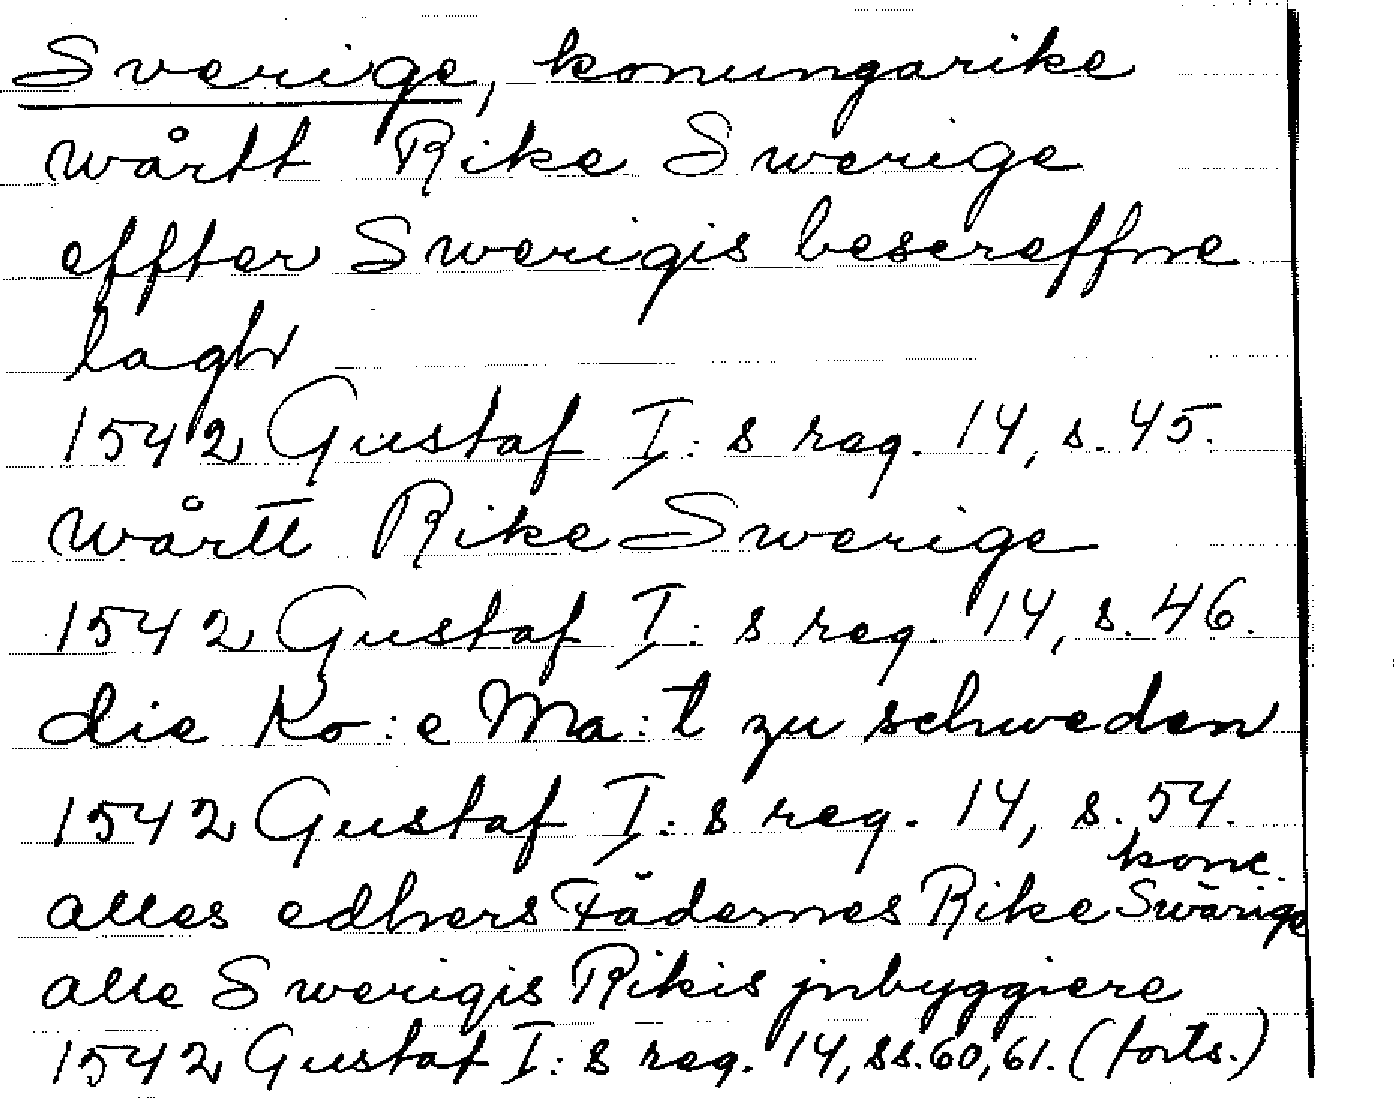 Sverige, konungarike
wårtt Rike Swerige
effter Swerigis bescreffne
lagh
1542 Gustaf I:s reg. 14, s. 45.
wårtt Rike Swerige
1542 Gustaf I:s reg. 14, s. 46.
die Ko:e Ma:t zu schweden
1542 Gustaf I:s reg. 14, s. 54.
konc.
alles edhers Fädernes Rike Swärige
alle Swerigis Rikis jnbyggiere
1542 Gustaf I:s reg. 14, ss. 60, 61. (forts.)